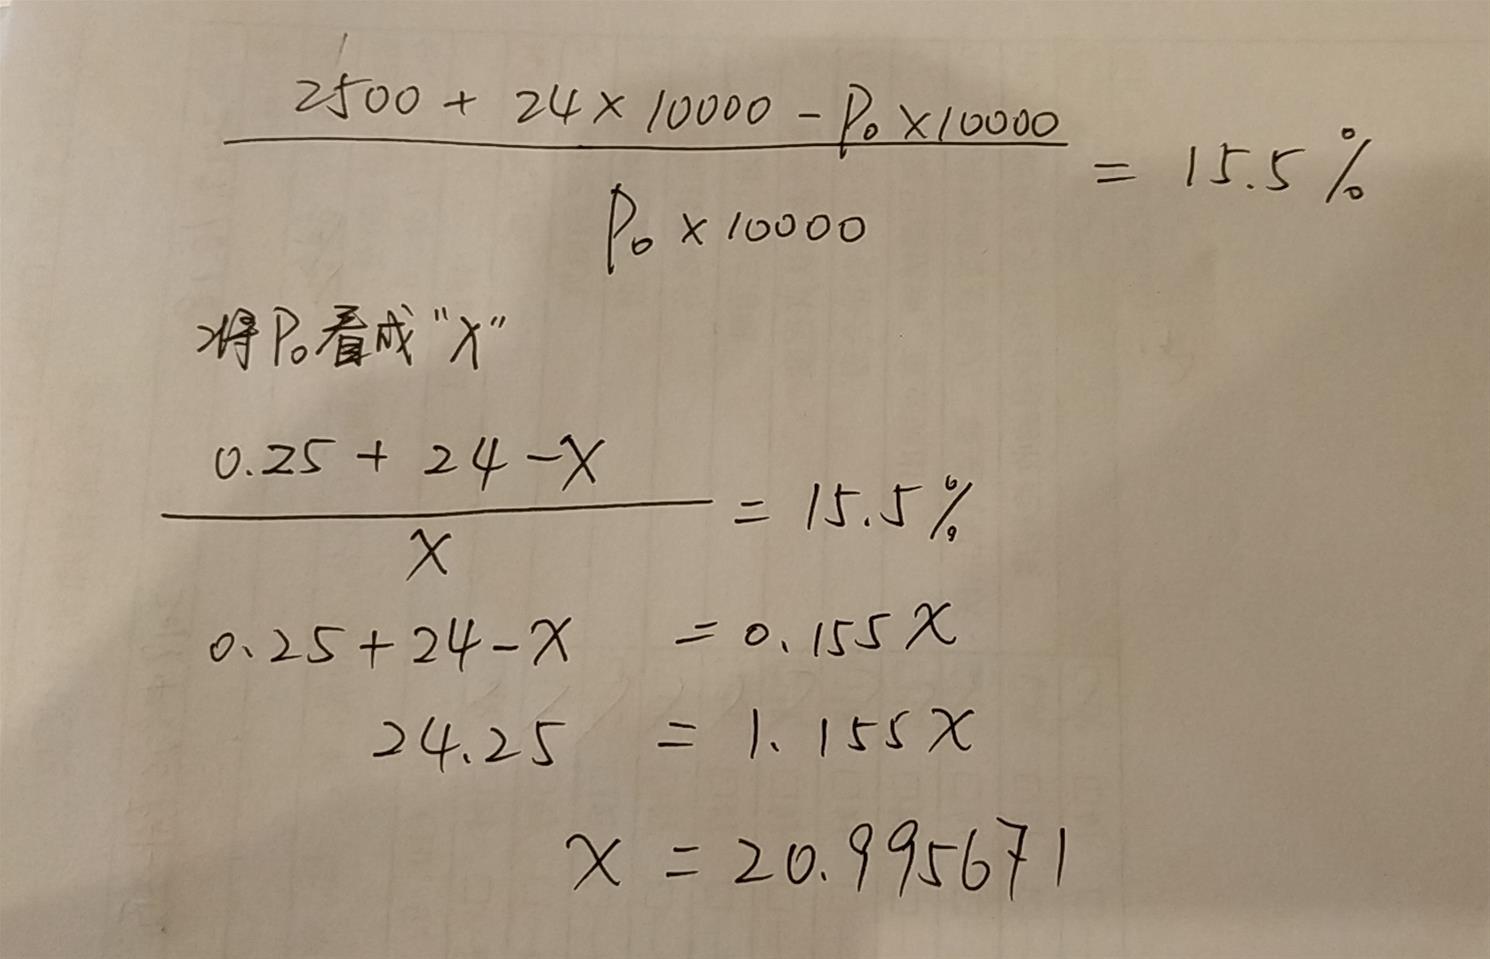 2500 + 24 × 10000 - P₀ × 10000
= 15.5%
P₀ × 10000
将P₀看成"X"
0.25 + 24 - X
= 15.5%
X
0.25 + 24 - X = 0.155X
24.25 = 1.155X
X = 20.995671